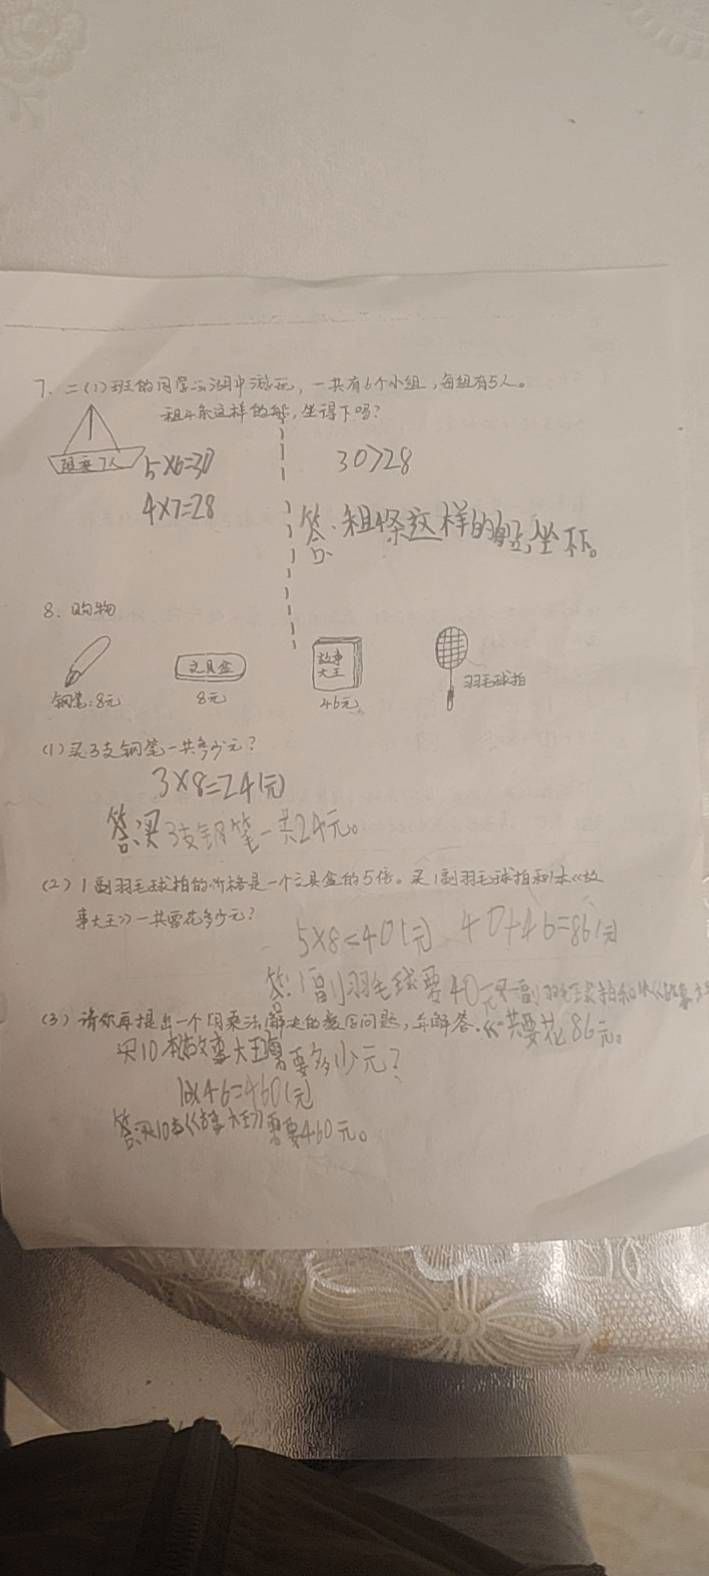 7. 二(1)班的同学去湖中游玩，一共有6个小组，每组有5人。
租4条这样的船，坐得下吗？
限乘7人
5×6=30
30>28
4×7=28
答：租4条这样的船，坐不下。
8. 购物
文具盒
故事大王
羽毛球拍
钢笔：8元
8元
46元
(1) 买3支钢笔一共多少元？
3×8=24(元)
答：买3支钢笔一共24元。
(2) 1副羽毛球拍的价格是一个文具盒的5倍。买1副羽毛球拍和1本《故
事大王》一共需花多少元？
5×8=40(元) 40+46=86(元)
答：1副羽毛球要40元，买一副羽毛球拍和1本《故事大王
(3) 请你再提出一个用乘法解决的数学问题，并解答。
》一共要花86元。
买10本故事大王需要多少元？
10×46=460(元)
答：买10本《故事大王》需要460元。